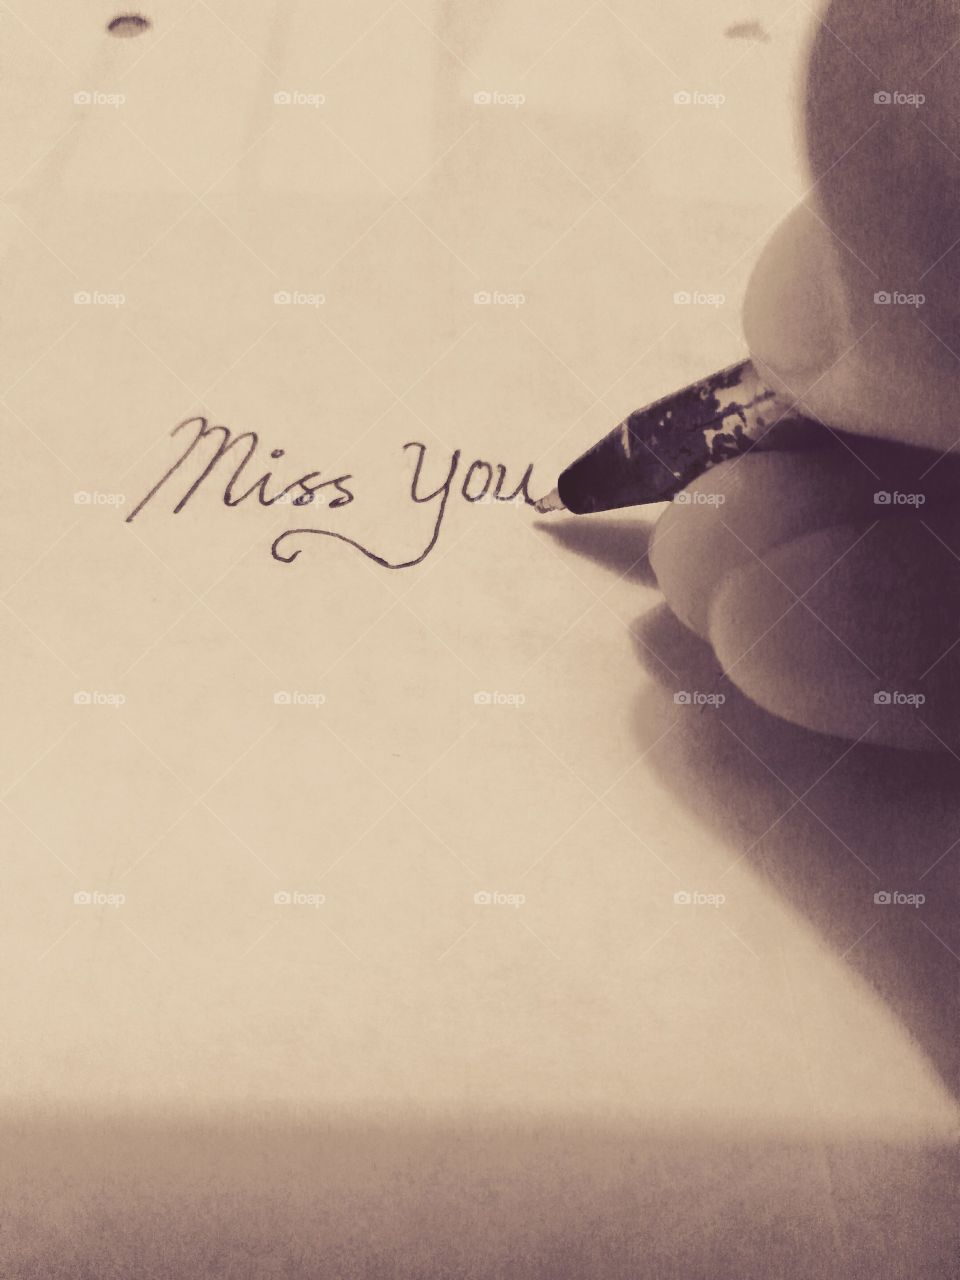 Miss You
foap foap foap foap foap
foap foap foap foap foap
foap foap foap foap foap
foap foap foap foap foap
foap foap foap foap foap